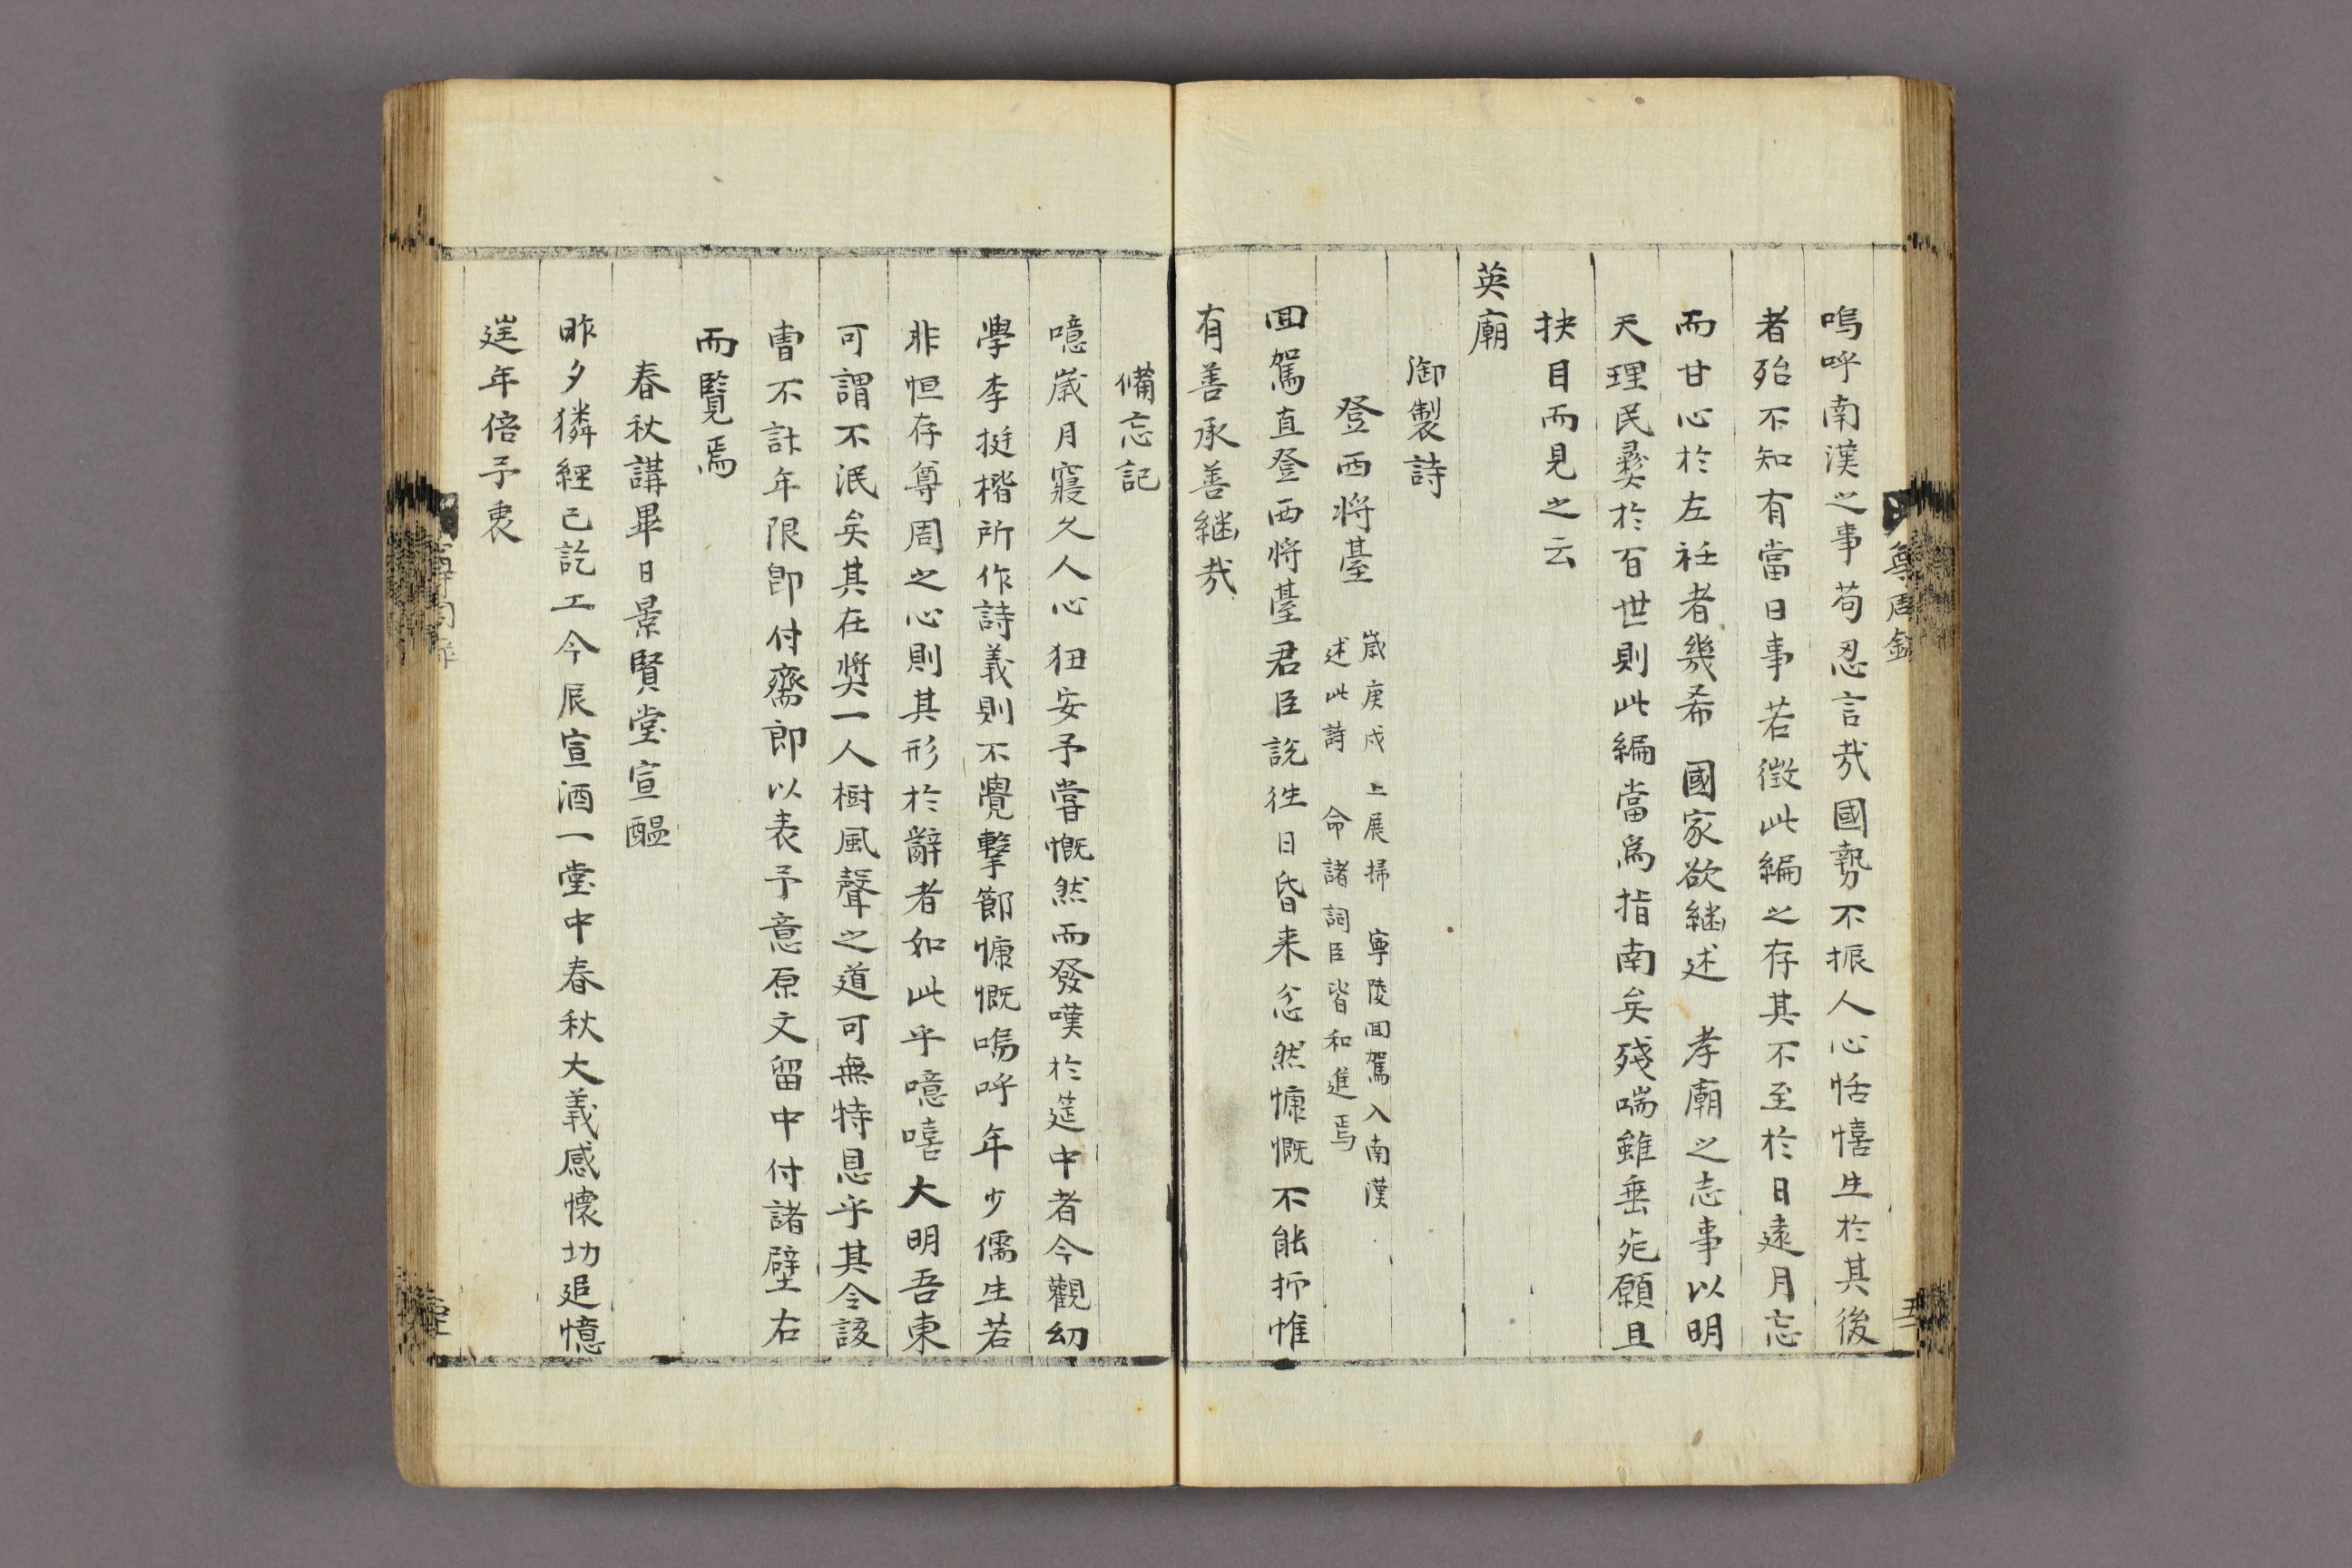 尊周錄
嗚呼南漢之事苟忍言哉國勢不振人心恬憘生於其後
者殆不知有當日事若徵此編之存其不至於日遠月忘
而甘心於左衽者幾希　國家欲継述　孝廟之志事以明
天理民彛於百世則此編當爲指南矣殘喘雖垂死願且
抉目而見之云
英廟
御製詩
登西将基
歲庚戌　上展掃　寧陵回駕入南漢
述此詩　命諸詞臣皆和進焉
回駕直登西將基君臣説徃日昏来忿然慷慨不能抑惟
有善承善継㢤
備忘記
噫歲月寢久人心狃安予嘗慨然而發嘆於筵中者今觀幼
學李挺楷所作詩義則不覺擊節慷慨嗚呼年少儒生若
非恒存尊周之心則其形於辭者如此乎噫嘻大明吾東
可謂不泯矣其在奬一人樹風聲之道可無特恩乎其令該
曹不計年限即付齋郎以表予意原文留中付諸壁右
而覽焉
春秋講畢日景賢堂宣醞
昨夕獜經已訖工今辰宣酒一堂中春秋大義感懷切追憶
莛年倍予衷